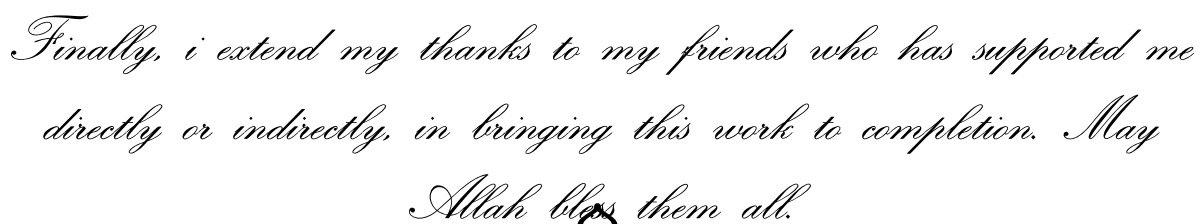 Finally, i extend my thanks to my friends who has supported me
directly or indirectly, in bringing this work to completion. May
Allah bless them all.